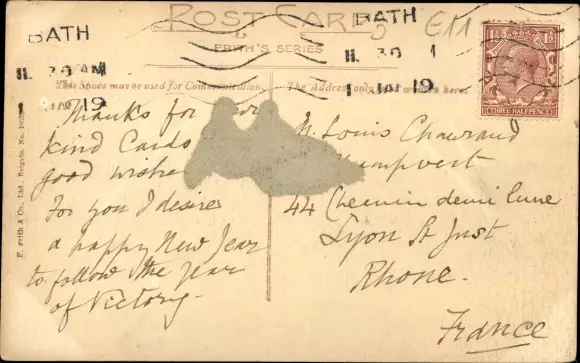 POST CARD
FRITH'S SERIES
BATH
11. 30 AM
1 JAN 19
BATH
11. 30 A
1 JAN 19
£11
1½ 1½
THREE HALFPENCE
This Space may be used for Communication.
The Address only
here.
F. Frith & Co., Ltd., Reigate. No.
Thanks for
kind Cards
good wishes
For you I desire
a happy New Year
to follow the Year
of Victory.
M. Louis
44 Chemin demi lune
Lyon St Just
Rhone.
France